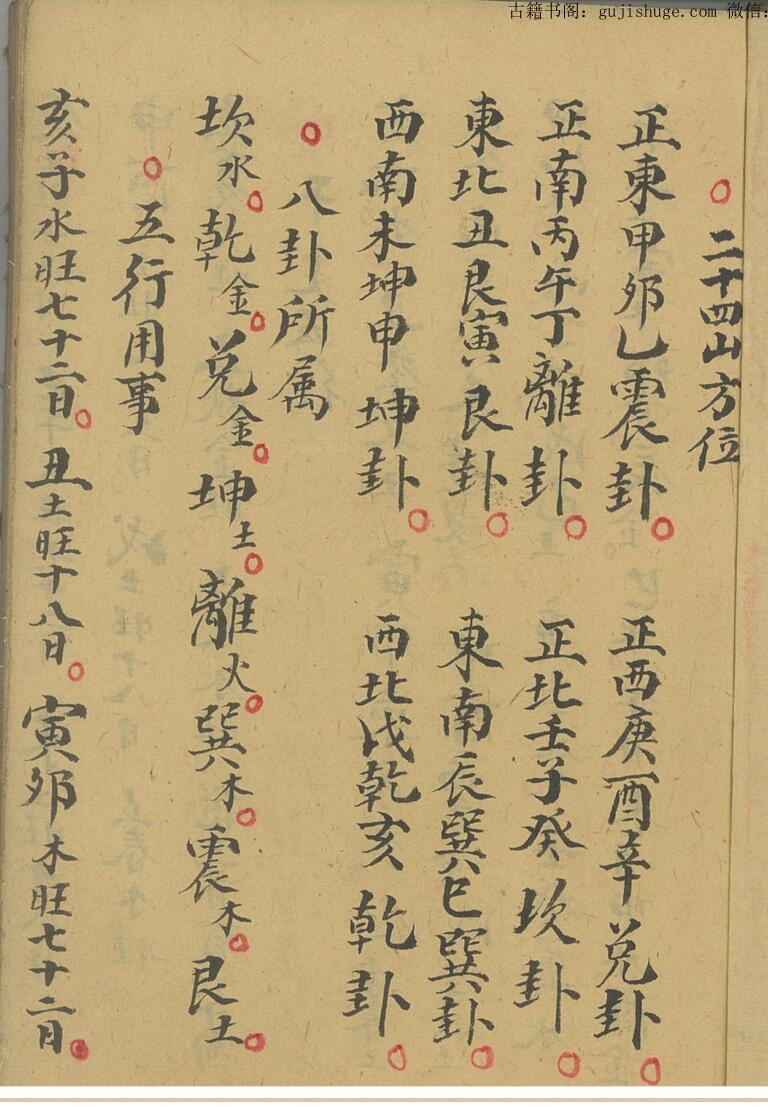 古籍书阁：gujishuge.com 微信:
○ 二十四山方位
正東甲卯乙震卦○ 正西庚酉辛兌卦○
正南丙午丁離卦○ 正北壬子癸坎卦○
東北丑艮寅艮卦○ 東南辰巽巳巽卦○
西南未坤申坤卦○ 西北戌乾亥乾卦○
○ 八卦所属
坎水○乾金○兌金○坤土○離火○巽木○震木○艮土○
○ 五行用事
亥子水旺七十二日○丑土旺十八日○寅卯木旺七十二日○